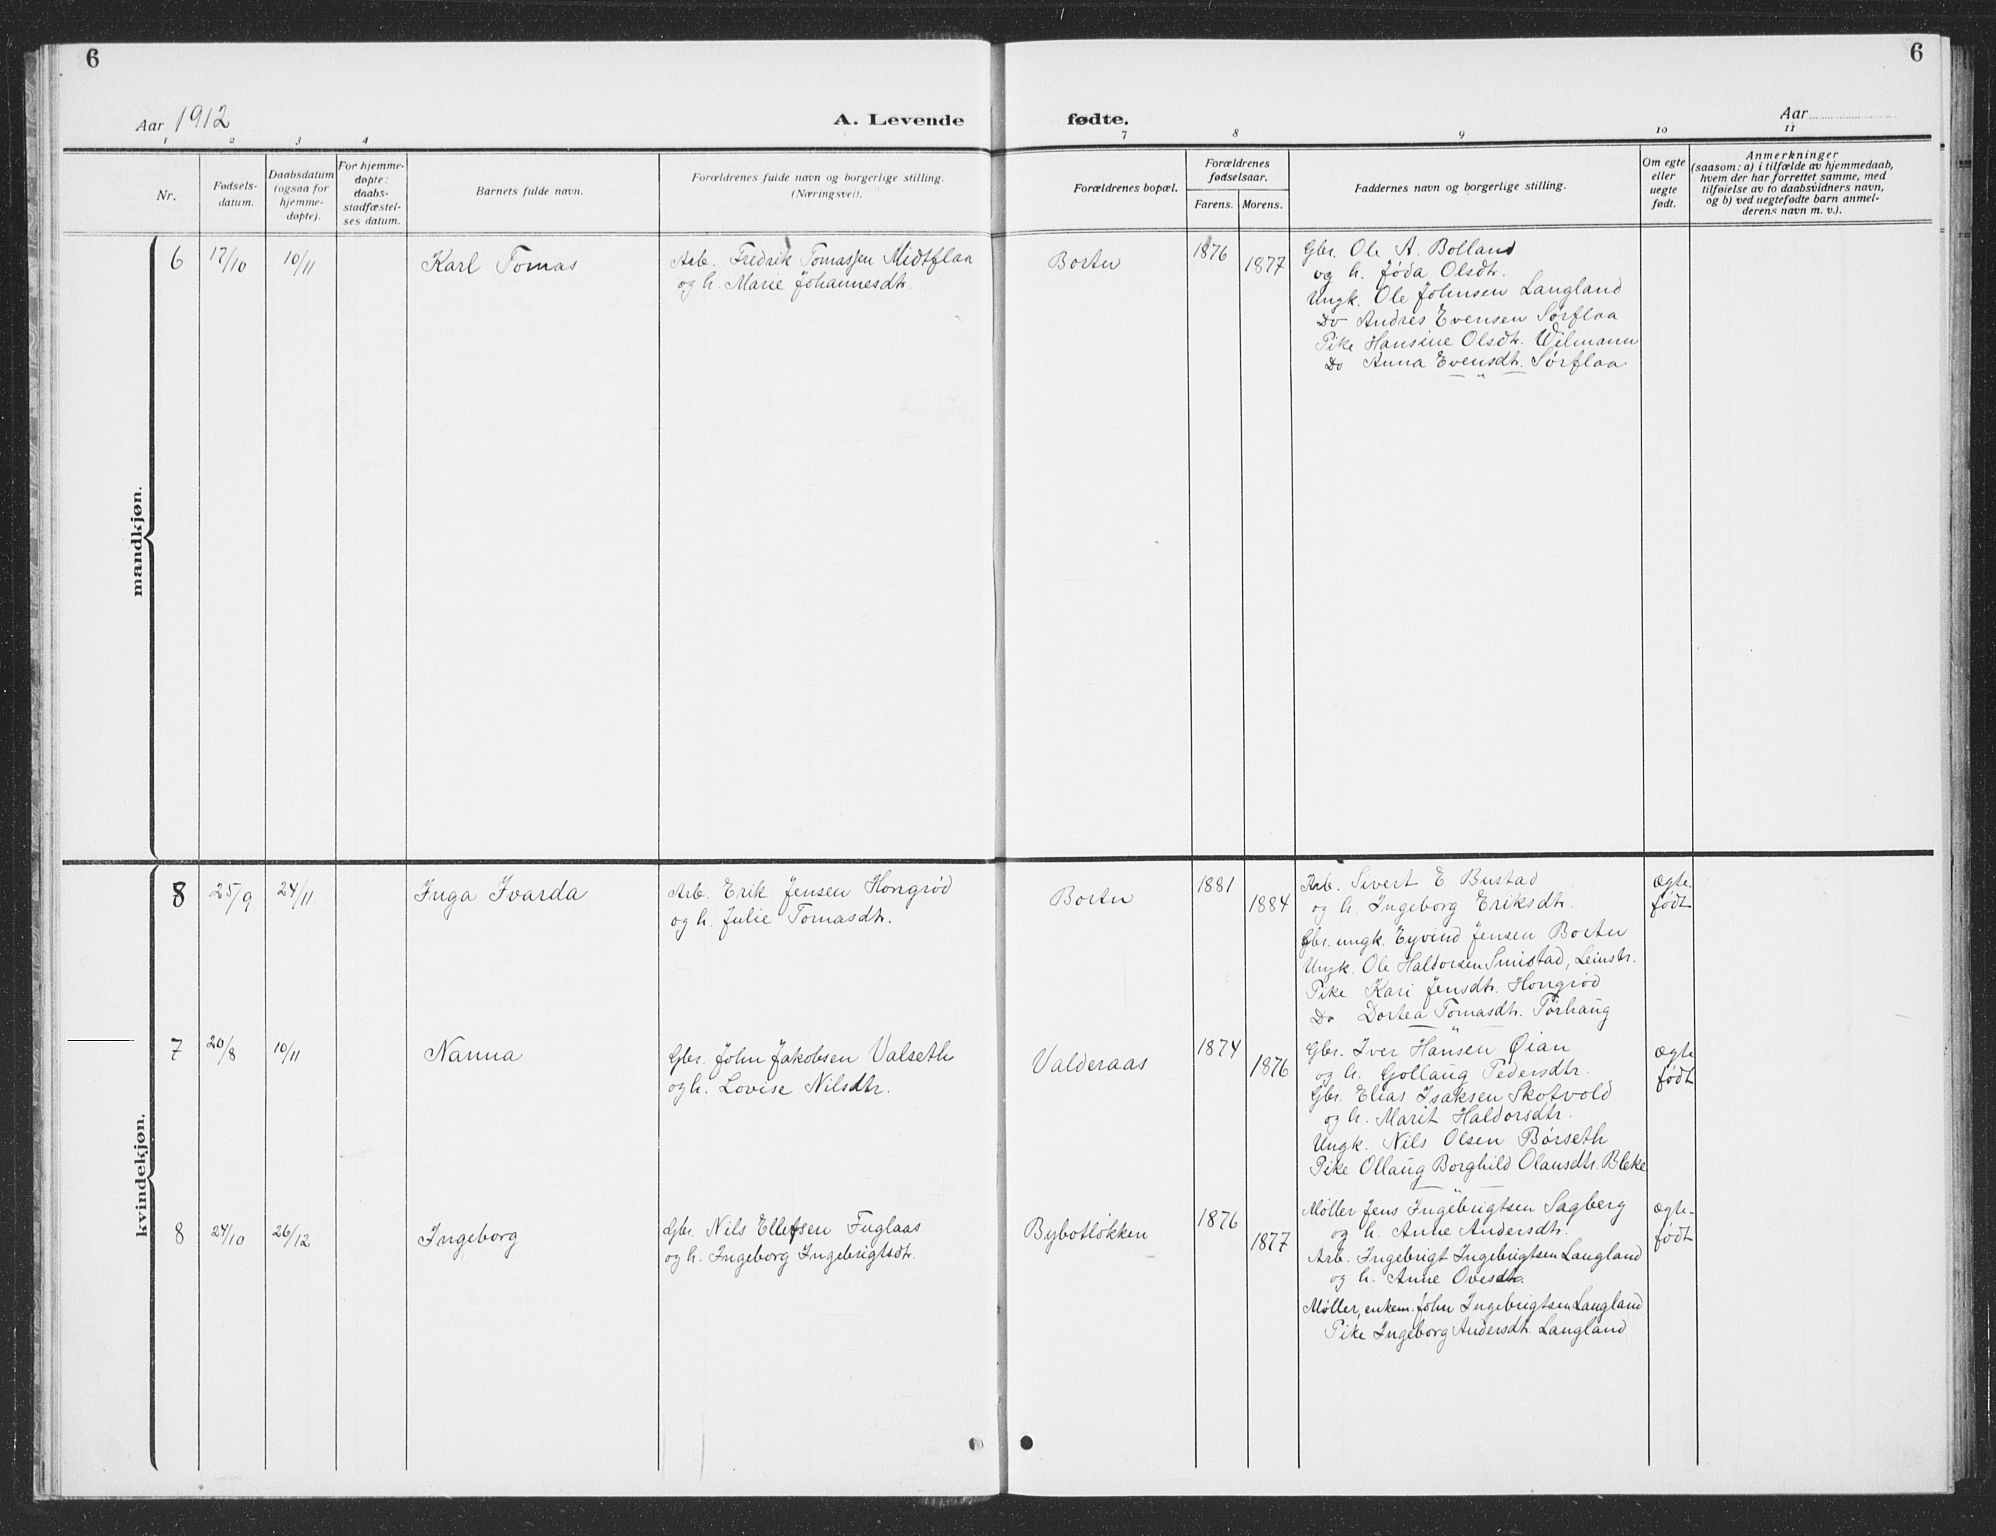 6
6
Aar 1912
A. Levende
fødte.
Aar
1 2 3 4
7 8 9 10 11
Nr.
Fødsels-
datum.
Daabsdatum
(ogsaa for
hjemme-
døpte).
For hjemme-
døpte:
daabs-
stadfæstel-
ses datum.
Barnets fulde navn.
Forældrenes fulde navn og borgerlige stilling.
(Næringsvei).
Forældrenes bopæl.
Forældrenes
fødselsaar.
Farens. Morens.
Faddernes navn og borgerlige stilling.
Om egte
eller
uegte
født.
Anmerkninger
(saasom: a) i tilfælde av hjemmedaab,
hvem der har forrettet samme, med
tilføielse av to daabsvidners navn,
og b) ved uegtefødte barn anmel-
derens navn m. v.).
mandkjøn.
6 17/10 10/11 Karl Tomas
Arb. Fredrik Tomassen Midtflaa
og h. Marie Johannesdtr.
Borten
1876
1877
Gbr. Ole A. Bolland
og h. Jøda Olsdtr.
Ungk. Ole Johnsen Langland
Do Andres Evensen Sørflaa
Pike Hansine Olsdtr. Wilmann
Do Anna Evensdtr. Sørflaa
kvindekjøn.
8 25/9 24/11 Inga Ivarda
Arb. Erik Jensen Hongrød
og h. Julie Tomasdtr.
Borten
1881
1884
Arb. Sivert E Bustad
og h. Ingeborg Eriksdtr.
Gbr. ungk. Eyvind Jensen Borten
Ungk. Ole Haldorsen Smistad, Leinstr.
Pike Kari Jensdtr. Hongrød
Do Dortea Tomasdtr. Torhaug
ægte-
født
7 20/8 10/11 Nanna
Gbr. John Jakobsen Valseth
og h. Lovise Nilsdtr.
Valderaas
1874
1876
Gbr. Iver Hansen Øian
og h. Gollaug Pedersdtr.
Gbr. Elias Isaksen Skotvold
og h. Marit Haldorsdtr.
Ungk. Nils Olsen Børseth
Pike Ollaug Borghild Olausdtr. Bleke
ægte
født
8 24/10 26/12 Ingeborg
Gbr. Nils Ellefsen Fuglaas
og h. Ingeborg Ingebrigtsdtr.
Bybotløkken
1876
1877
Møller Jens Ingebrigtsen Sagberg
og h. Anne Andersdtr.
Arb. Ingebrigt Ingebrigtsen Langland
og h. Anne Ovesdtr.
Møller, enkem. John Ingebrigtsen Langland
Pike Ingeborg Andersdtr. Langland
ægte-
født